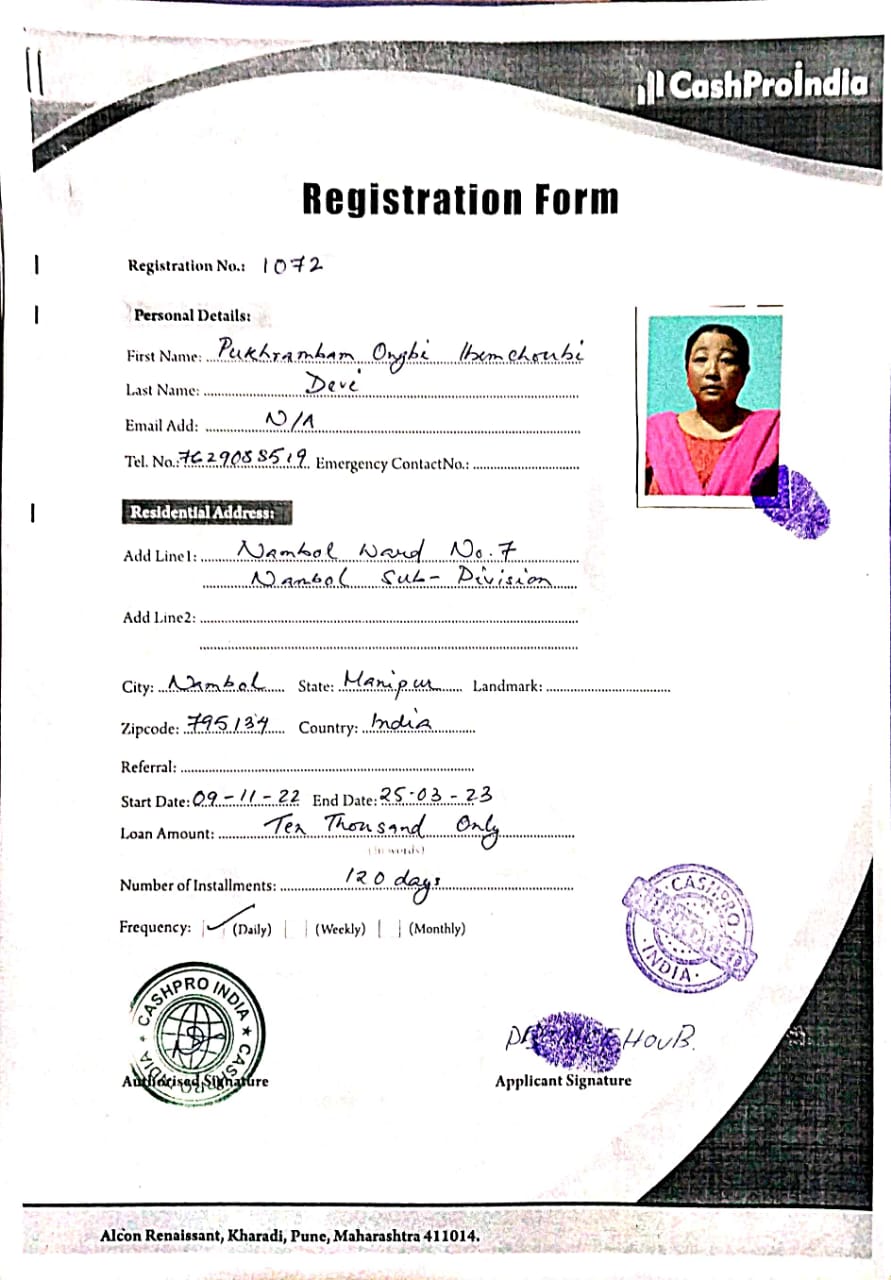 CashProIndia
Registration Form
Registration No.: 1072
Personal Details:
First Name: Pukhrambam Ongbi Ibemchoubi
Last Name: Devi
Email Add: N/A
Tel. No.: 7629088519 Emergency ContactNo.:
Residential Address:
Add Line1: Nambol Ward No. 7
Nambol Sub-Division
Add Line2:
City: Nambol State: Manipur Landmark:
Zipcode: 795134 Country: India
Referral:
Start Date: 09-11-22 End Date: 25-03-23
Loan Amount: Ten Thousand Only
(In words)
Number of Installments: 120 days
Frequency: (Daily) (Weekly) (Monthly)
CASHPRO
INDIA
CASHPRO INDIA
Authorised Signature
Applicant Signature
Alcon Renaissant, Kharadi, Pune, Maharashtra 411014.